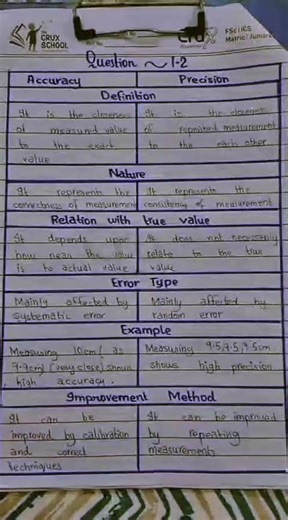 The
CRUX
SCHOOL
Crux
FSc | ICS
Matric | Juniors
Question ~ 1-2
Accuracy
Precision
Definition
It is the closeness
of measured value
to the exact
value
It is the closeness
of repeated measurement
to the each other
Nature
It represents the
correctness of measurement
It represents the
consistency of measurement
Relation with true value
It depends upon
how near the value
is to actual value
It does not necessarily
relate to the true
value
Error Type
Mainly affected by
systematic error
Mainly affected by
random error
Example
Measuring 10cm as
9.9cm (very close) shows
high accuracy.
Measuring 9.5, 9.5, 9.5cm
shows high precision
Improvement Method
It can be
improved by calibration
and correct
techniques
It can be improved
by repeating
measurements